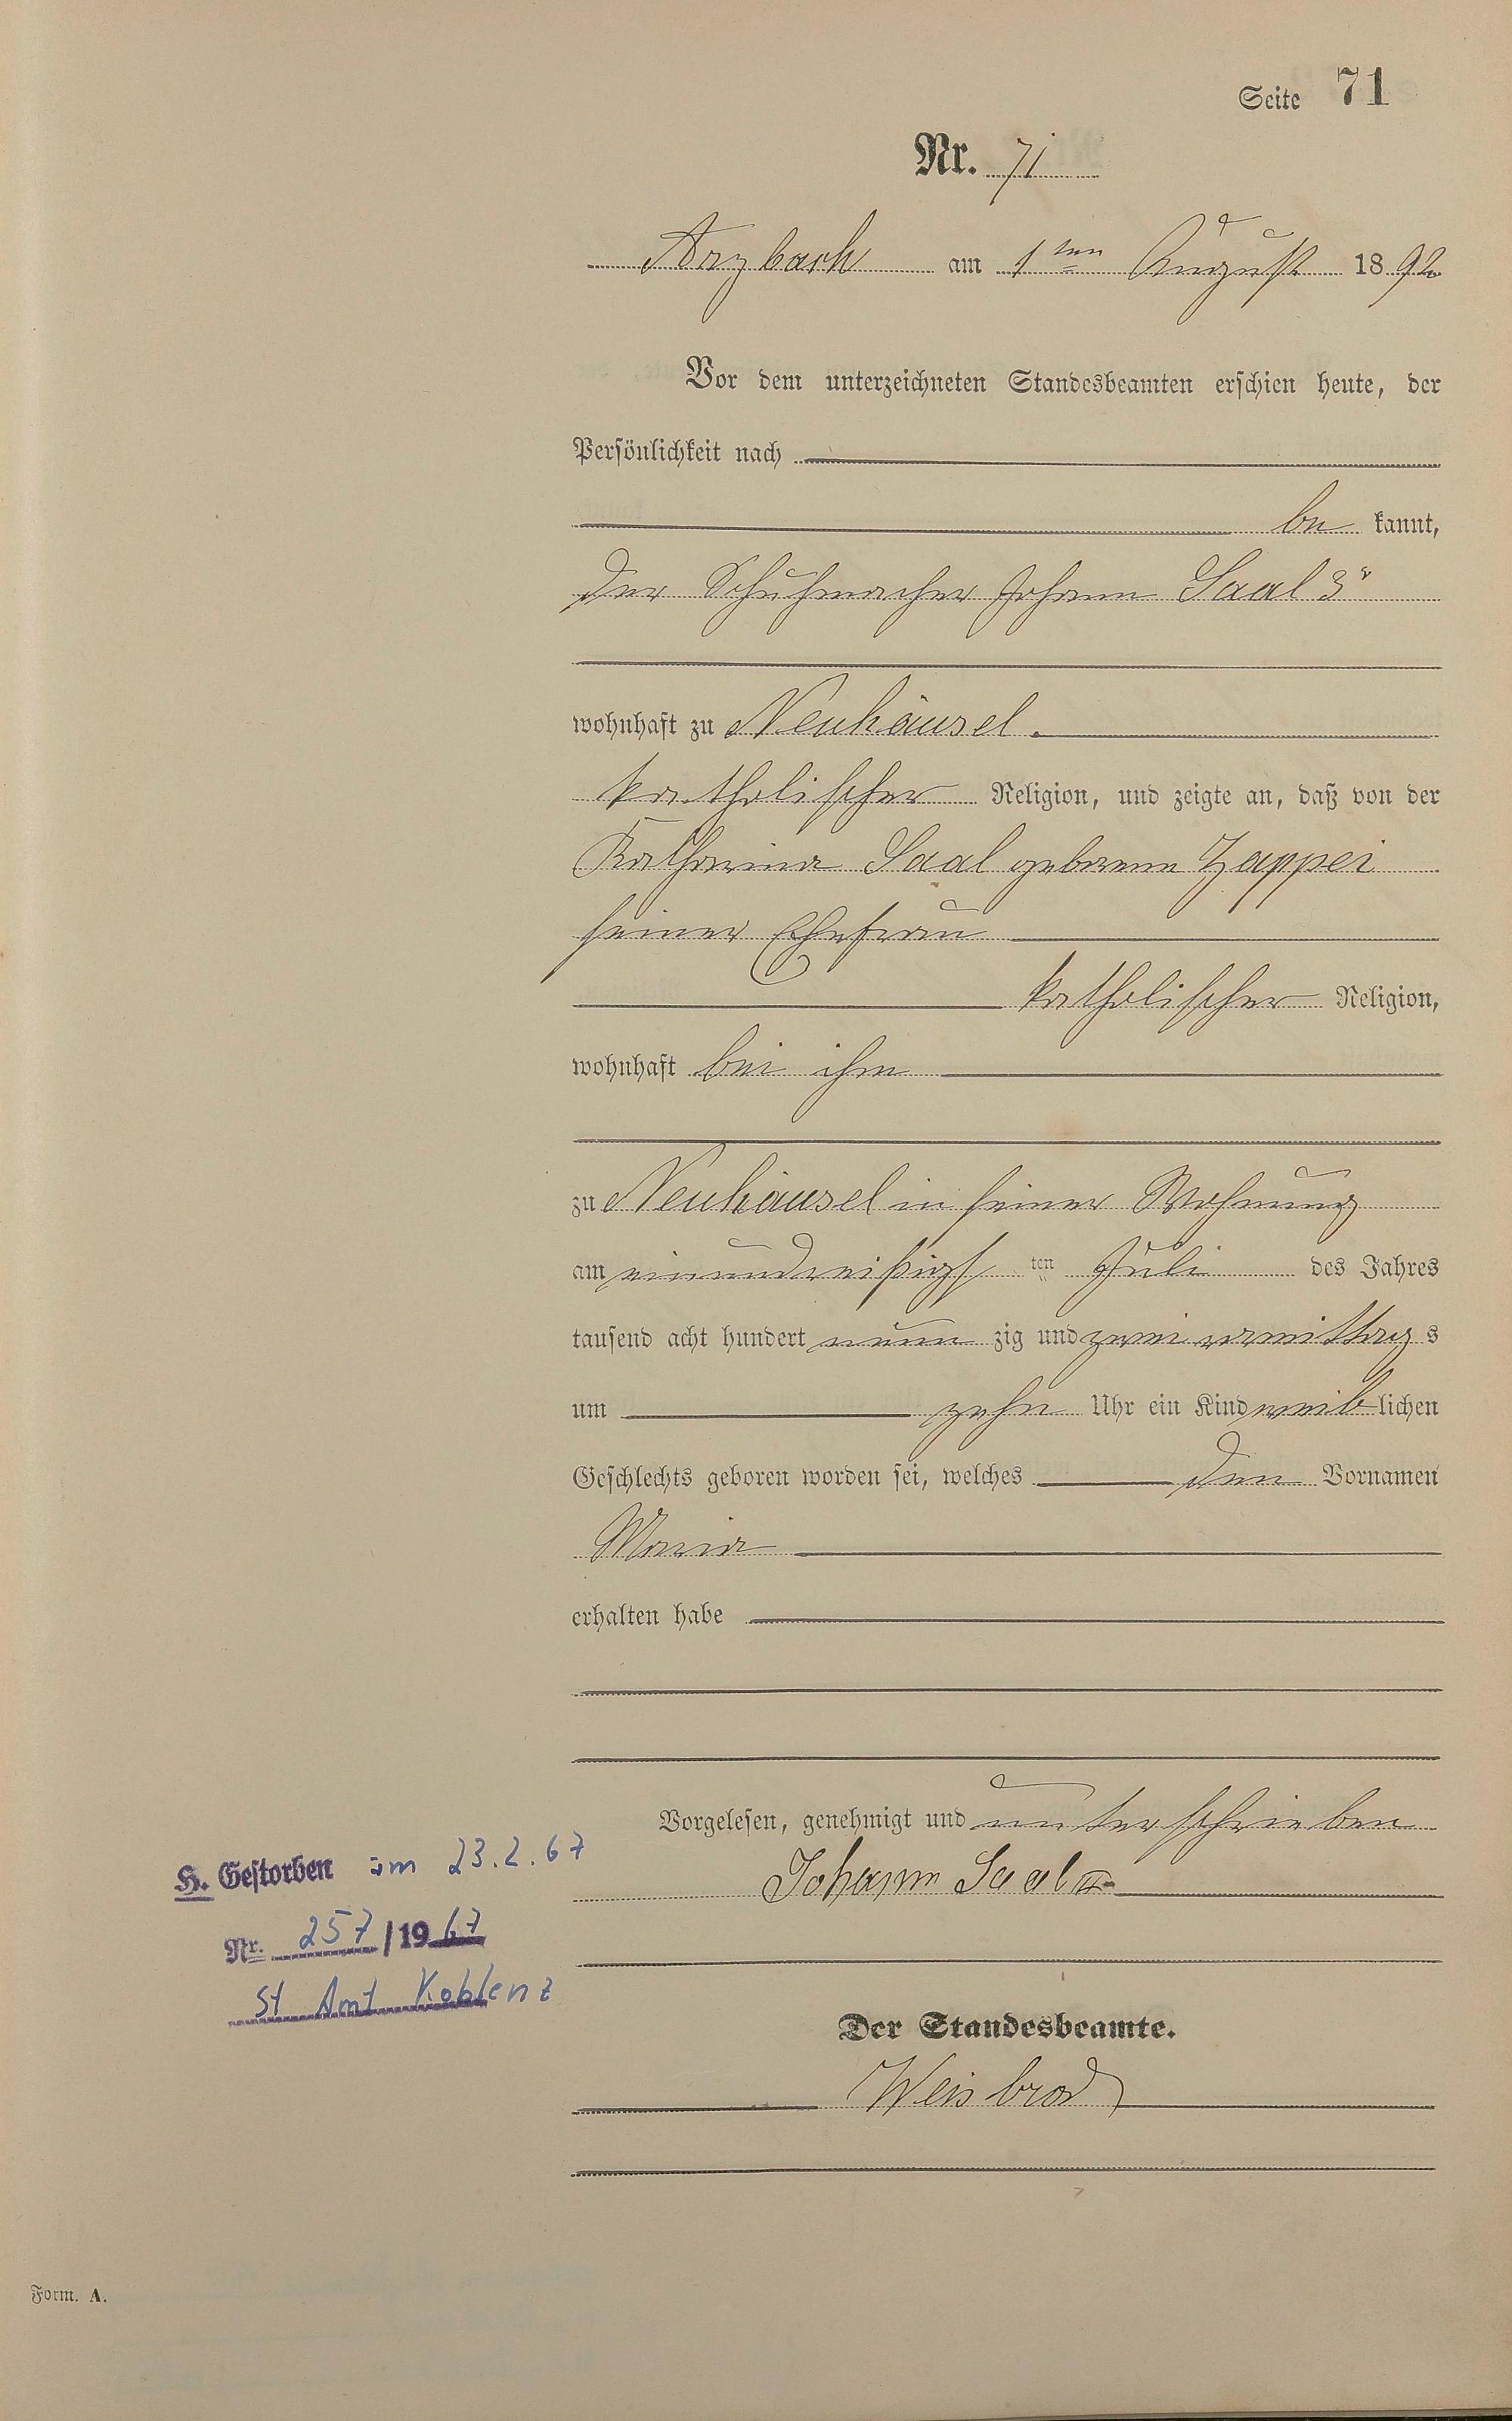 Seite 71
Nr. 71
Arzbach am 1ten August 1892
Vor dem unterzeichneten Standesbeamten erschien heute, der
Persönlichkeit nach
be kannt,
der Schuhmacher Johann Saal 3r
wohnhaft zu Neuhäusel.
katholischer Religion, und zeigte an, daß von der
Katharina Saal geborene Zappei
seiner Ehefrau
katholischer Religion,
wohnhaft bei ihm
zu Neuhäusel in seiner Wohnung
am einunddreißigsten Juli des Jahres
tausend acht hundert neun zig und zwei vormittags
um zehn Uhr ein Kind weiblichen
Geschlechts geboren worden sei, welches den Vornamen
Maria
erhalten habe
Vorgelesen, genehmigt und unterschrieben
Johann Saal III
H. Gestorben am 23.2.67
Nr. 257/1967
St Amt Koblenz
Der Standesbeamte.
Weisbrod
Form. A.